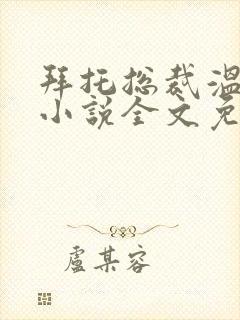 拜托总裁温
小说全文免
卢某容